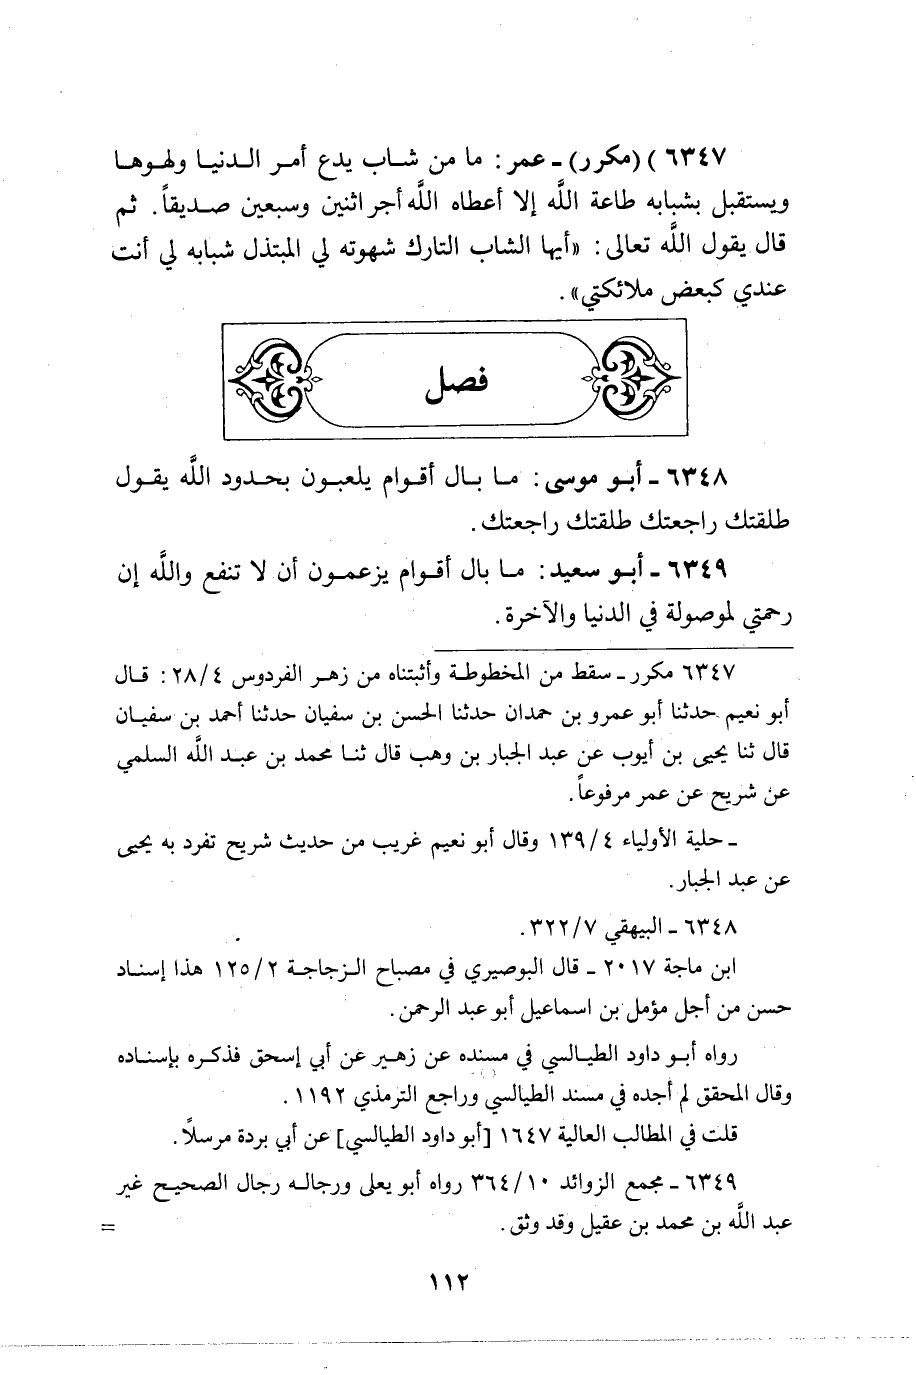 ٦٣٤٧) (مكرر) ـ عمر: ما من شاب يدع أمر الدنيا ولهوها
ويستقبل بشبابه طاعة اللَّه إلا أعطاه اللَّه أجر اثنين وسبعين صديقاً. ثم
قال يقول اللَّه تعالى: «أيها الشاب التارك شهوته لي المبتذل شبابه لي أنت
عندي كبعض ملائكتي».
فصل
٦٣٤٨ ـ أبو موسى: ما بال أقوام يلعبون بحدود اللَّه يقول
طلقتك راجعتك طلقتك راجعتك.
٦٣٤٩ ـ أبو سعيد: ما بال أقوام يزعمون أن لا تنفع واللَّه إن
رحمتي لموصولة في الدنيا والآخرة.
٦٣٤٧ مكرر ـ سقط من المخطوطة وأثبتناه من زهر الفردوس ٢٨/٤: قال
أبو نعيم حدثنا أبو عمرو بن حمدان حدثنا الحسن بن سفيان حدثنا أحمد بن سفيان
قال ثنا يحيى بن أيوب عن عبد الجبار بن وهب قال ثنا محمد بن عبد اللَّه السلمي
عن شريح عن عمر مرفوعاً.
ـ حلية الأولياء ١٣٩/٤ وقال أبو نعيم غريب من حديث شريح تفرد به يحيى
عن عبد الجبار.
٦٣٤٨ ـ البيهقي ٣٢٢/٧.
ابن ماجة ٢٠١٧ ـ قال البوصيري في مصباح الزجاجة ١٢٥/٢ هذا إسناد
حسن من أجل مؤمل بن اسماعيل أبو عبد الرحمن.
رواه أبو داود الطيالسي في مسنده عن زهير عن أبي إسحق فذكره بإسناده
وقال المحقق لم أجده في مسند الطيالسي وراجع الترمذي ١١٩٢.
قلت في المطالب العالية ١٦٤٧ [أبو داود الطيالسي] عن أبي بردة مرسلاً.
٦٣٤٩ ـ مجمع الزوائد ٣٦٤/١٠ رواه أبو يعلى ورجاله رجال الصحيح غير
عبد اللَّه بن محمد بن عقيل وقد وثق. =
١١٢